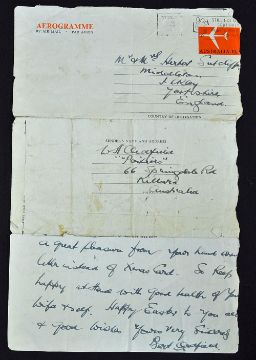 AEROGRAMME
BY AIR MAIL • PAR AVION
AUSTRALIA
Mr & Mrs Herbert Sutcliffe
Ilkley
Yorkshire
England.
COUNTRY OF DESTINATION
SENDER'S NAME AND ADDRESS
W A Oldfield
66 Springdale Rd
Killara
Australia
a great pleasure from your hand
letter instead of Xmas Card. So keep
happy with good health of your
wife & self. Happy Easter to you all
& good wishes Yours Very Sincerely
Bert Oldfield